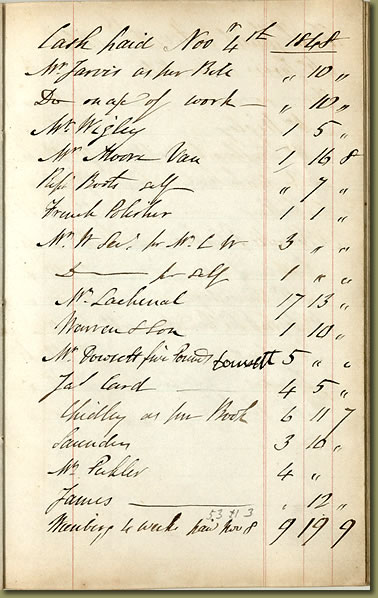 Cash paid Nov<sup>r</sup> 4th 1848
Mr Jarvis as per Bill " 10 "
Do on a/c of work — " 10 "
Mr Wigley 1 5 "
Mr Moore Van 1 16 8
Boots self " 7 "
French Polisher 1 1 "
Mr W for Mr L W 3 " "
D— for self 1 " "
Mr Lachenal 17 13 "
Warren & Son 1 10 "
Mr Dowsett five Pounds Dowsett 5 " "
Jas Card — 4 5 "
Chidley as per Book 6 11 7
Saunders 3 16 "
Mr Pichler 4 "
James — " 12 "
weeks paid Nov 8 9 19 9
53 11 3